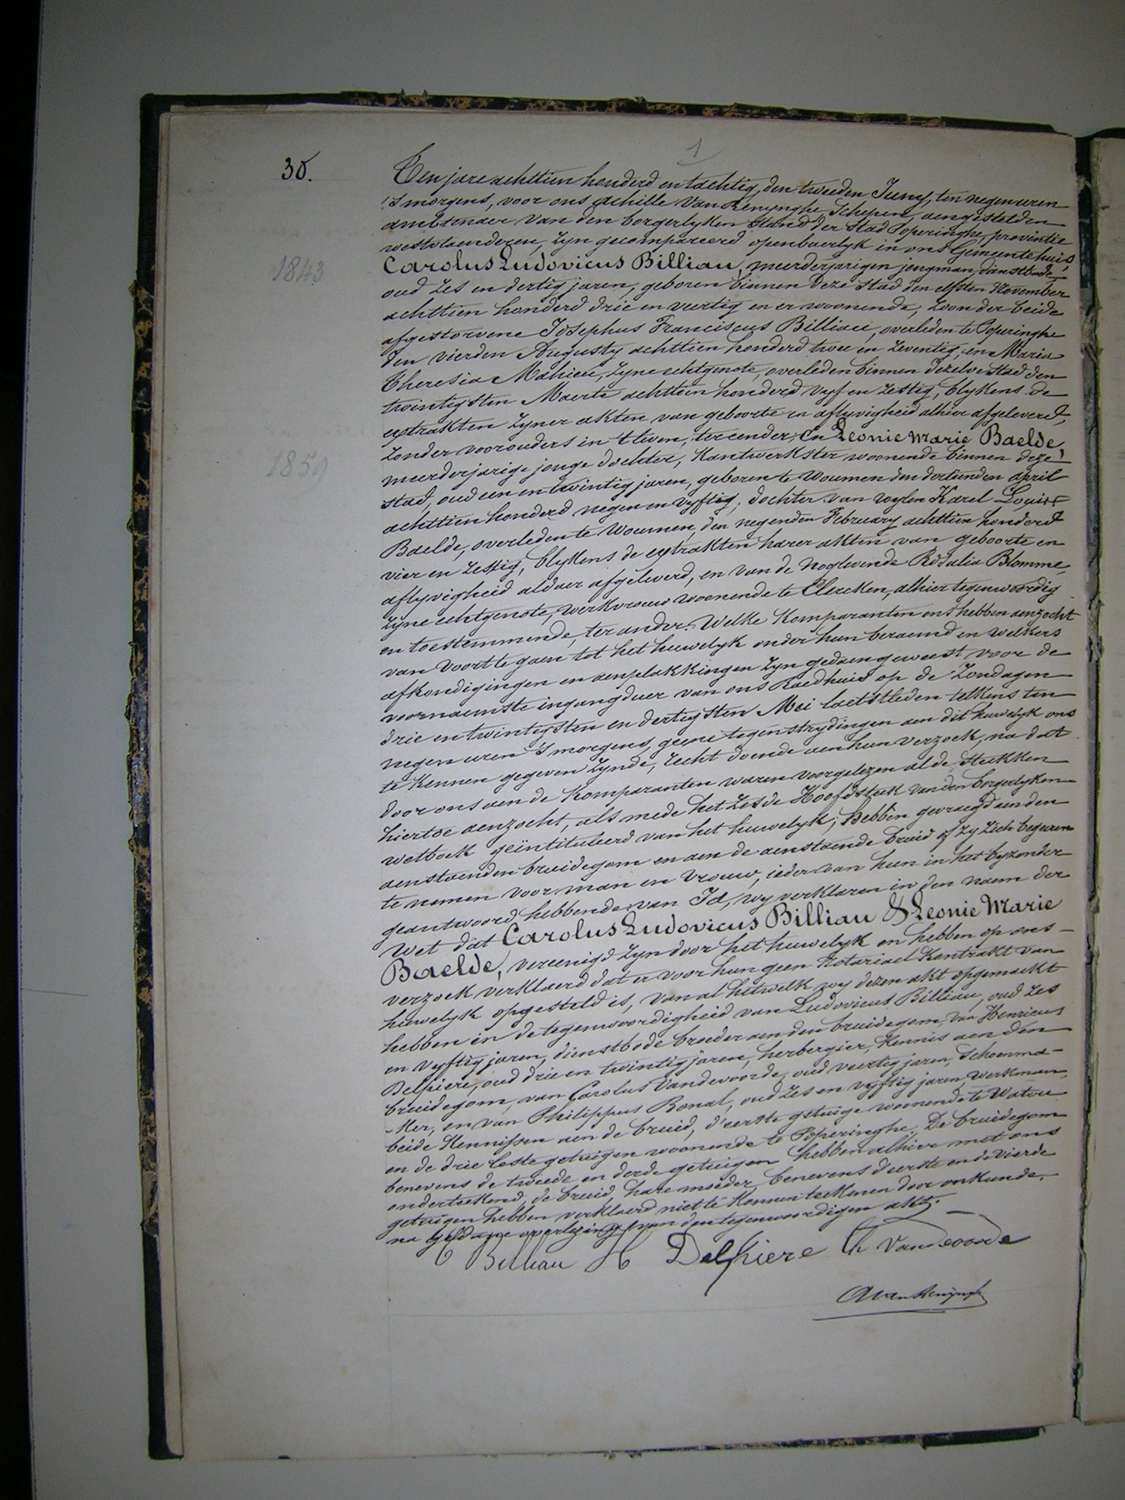 1
30.
Ten jare achttien honderd en tachtig, den tweeden Juny, ten negen uren
's morgens, voor ons Achille Van Renynghe Schepen, aengestelden
ambtenaer van den borgerlyken stand der Stad Poperinghe, provintie
westvlaenderen, zyn gecompareerd openbaerlyk in ons Gemeentehuis,
Carolus Ludovicus Billiau, meerderjarigen jongman, dienstbode
1843
oud zes en dertig jaren, geboren binnen deze Stad den elfsten November
achttien honderd drie en veertig en er woonende, zoon der beide
afgestorvene Josephus Franciscus Billiau, overleden te Poperinghe
den vierden Augusty achttien honderd twee en zeventig, en Maria
Theresia Mahieu, zyne echtgenote, overleden binnen dezelve stad den
twintigsten Maerte achttien honderd vyf en zestig, blykens de
extrakten zyner akten van geboorte en aflyvigheid alhier afgeleverd,
zonder voorouders in 't leven, ter eender; En Leonie Marie Baelde,
1859
meerderjarige jonge dochter, Kantwerkster woonende binnen deze
stad, oud een en twintig jaren, geboren te Woumen den dertienden april
achttien honderd negen en vyftig, dochter van wylen Karel Louis
Baelde, overleden te Woumen, den negenden February achttien honderd
vier en zestig, blykens de extrakten harer akten van geboorte en
aflyvigheid aldaer afgeleverd, en van de noglevende Rosalia Blomme,
zyne echtgenote, werkvrouw woonende te Clercken, alhier tegenwoordig
en toestemmende, ter ander. Welke Komparanten ons hebben aenzocht
van voort te gaen tot het huwelyk onder hun beraemd en welkers
afkondigingen en aenplakkingen zyn gedaen geweest voor de
voornaemste ingangdeur van ons Raedhuis op de Zondagen
drie en twintigsten en dertigsten Mei laetstleden telkens ten
negen uren 's morgens, geene tegenstrydingen aen dit huwelyk ons
te kennen gegeven zynde, recht doende aen hun verzoek, na dat
door ons aen de Komparanten waren voorgelezen al de stukken
hiertoe aenzocht, als mede het zesde Hoofdstuk van den borgerlyken
wetboek geïntituleerd van het huwelyk, hebben gevraegd aen den
aenstaenden bruidegom en aen de aenstaende bruid of zy zich begeeren
te nemen voor man en vrouw, ieder van hun in het byzonder
geantwoord hebbende van Ja, wy verklaren in den naem der
Wet dat Carolus Ludovicus Billiau & Leonie Marie
Baelde, vereenigd zyn door het huwelyk en hebben op ons
verzoek verklaerd dat er voor hun geen Notariael Kontrakt van
huwelyk opgesteld is, van al hetwelk wy dezen akt opgemaekt
hebben in de tegenwoordigheid van Ludovicus Billiau, oud zes
en vyftig jaren, dienstbode broeder aen den bruidegom, van Henricus
Delpiere, oud drie en twintig jaren, herbergier, Kennis aen den
bruidegom, van Carolus Vandevoorde, oud veertig jaren, Schoenma-
-ker, en van Philippus Bonal, oud zes en vyftig jaren, werkman,
beide Kennissen aen de bruid, d'eerste getuige woonende te Watou
en de drie leste getuigen woonende te Poperinghe. De bruidegom
benevens de tweede en derde getuigen hebben alhier met ons
onderteekend, de bruid, hare moeder, benevens d'eerste en de vierde
getuigen hebben verklaerd niet te konnen teekenen door onkunde,
na gedane overlezing van den tegenwoordigen akt.
C Billiau H Delpiere Ch Vandevoorde
A Van Renynghe